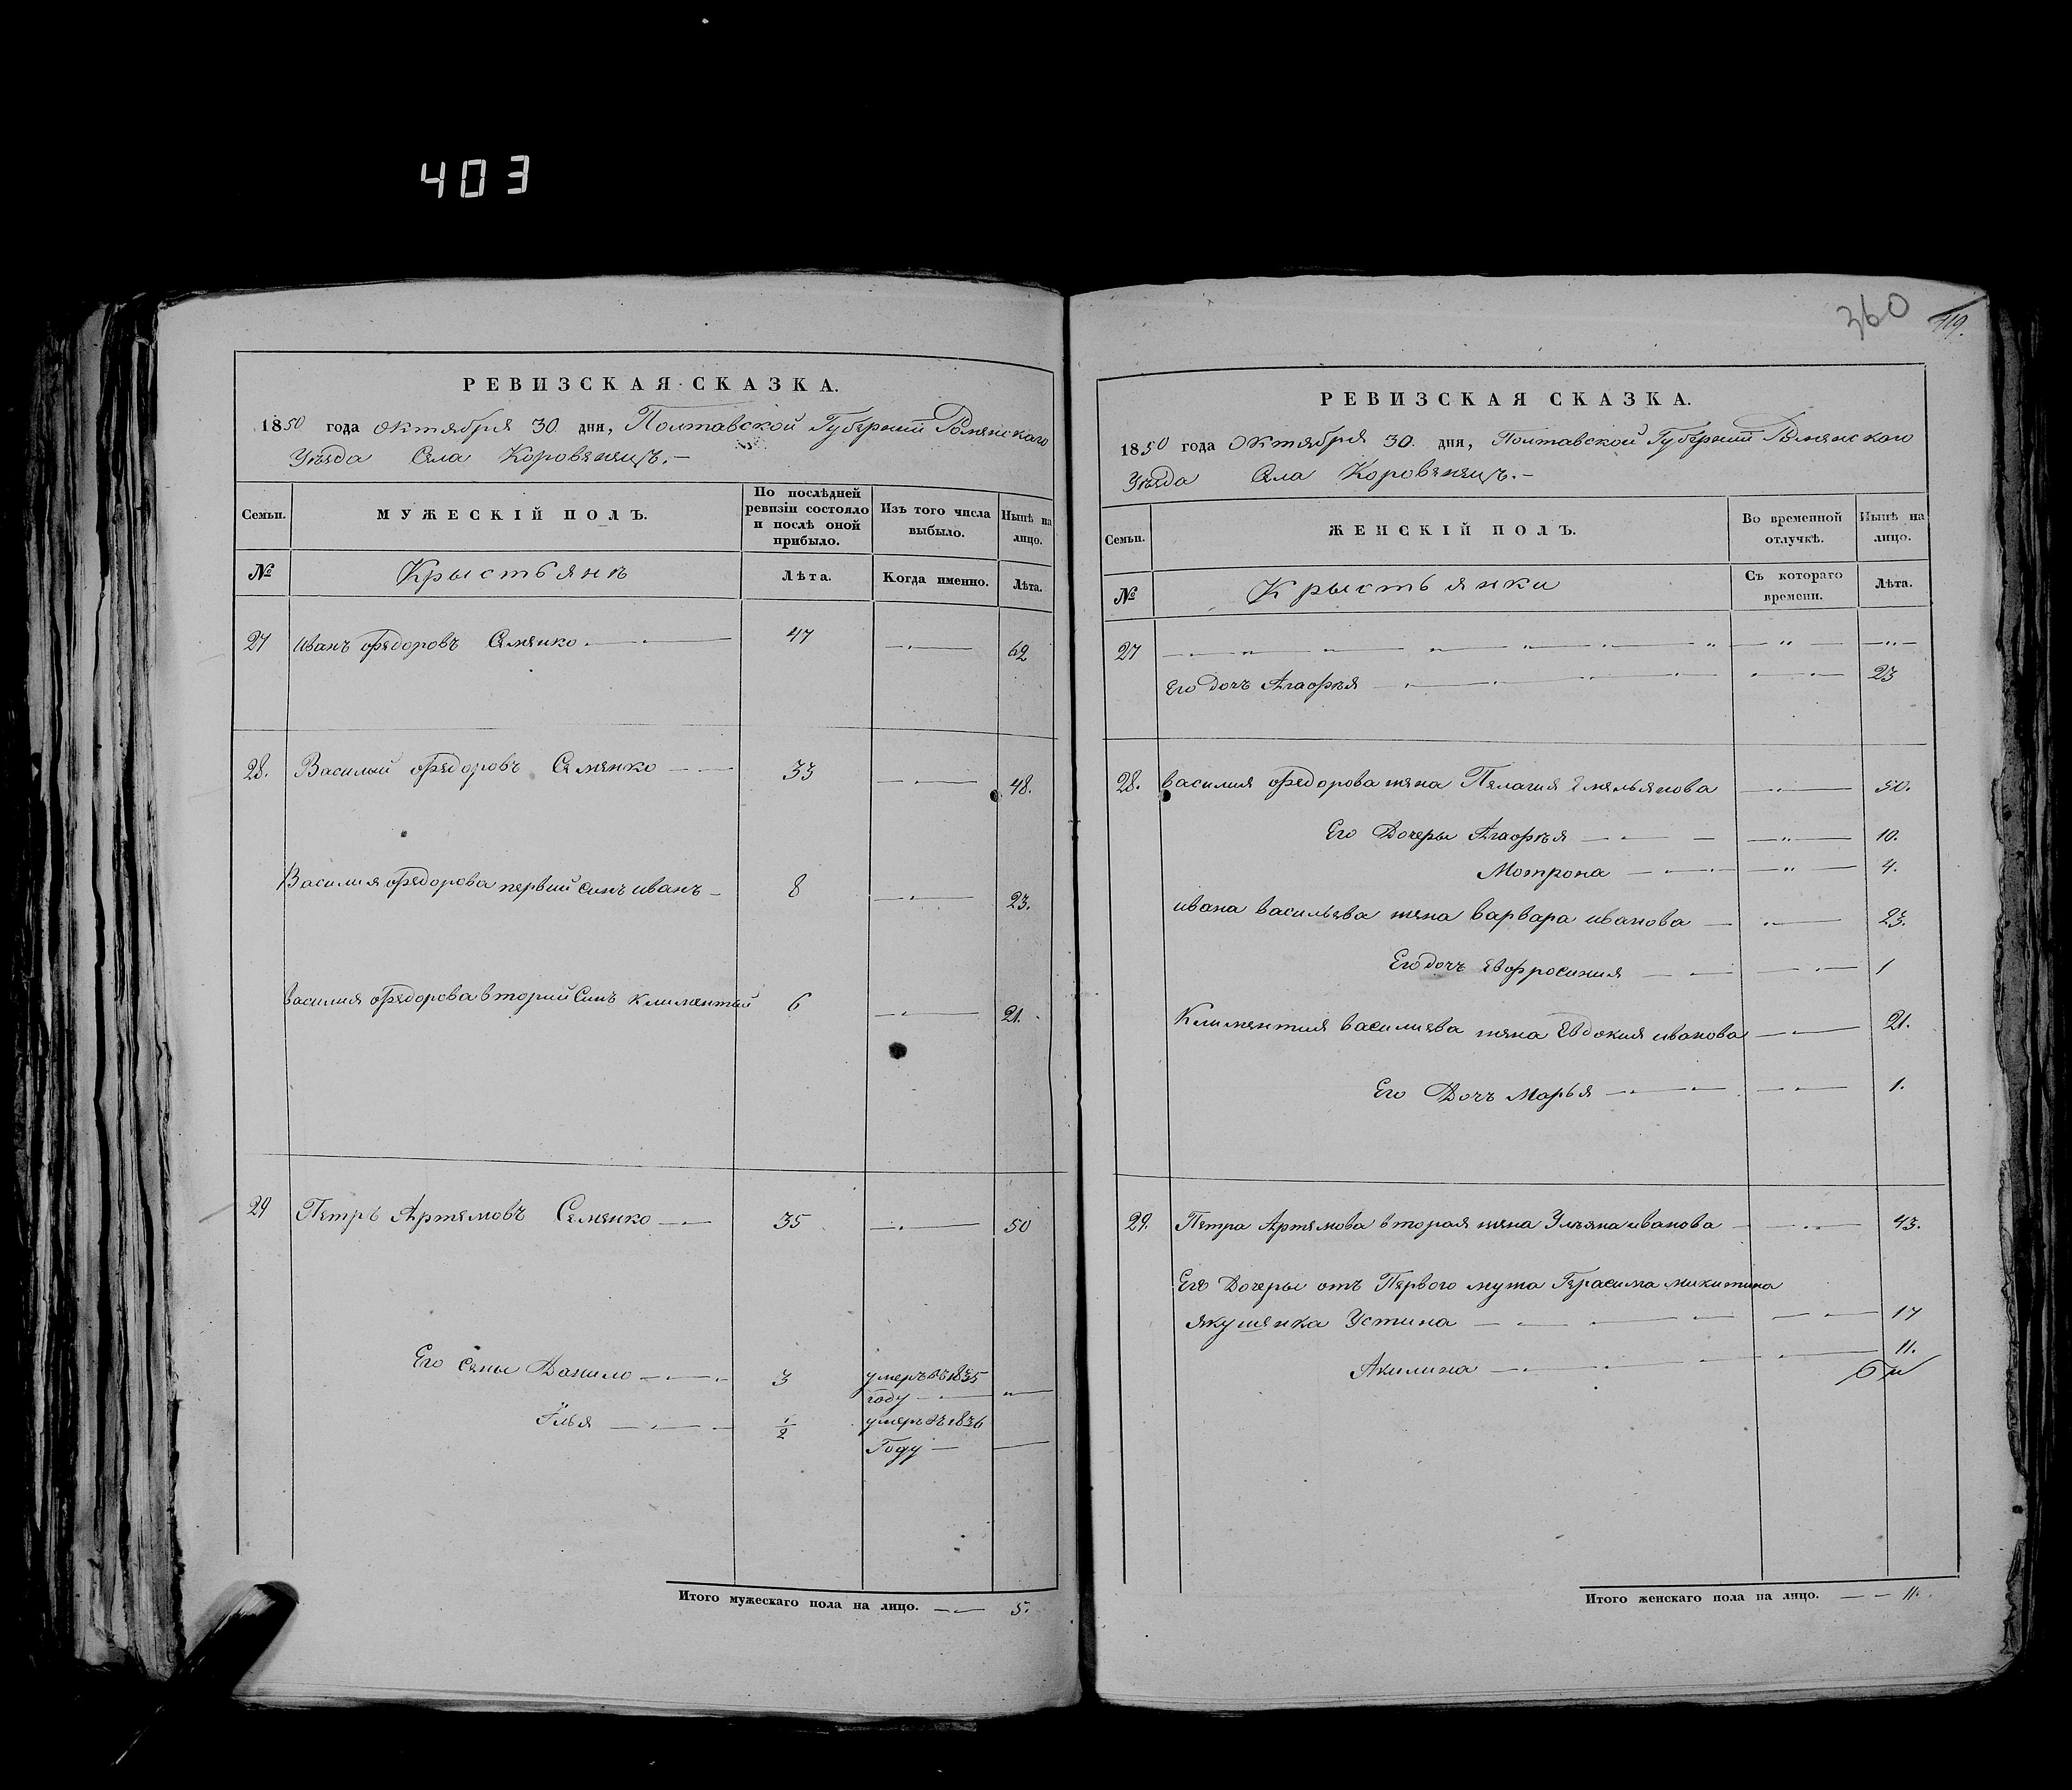 403
360
119.
РЕВИЗСКАЯ СКАЗКА.
1850 года октября 30 дня, Полтавской Губерниї Роменскаго
Уезда Села Коровенець.-
Семьи. МУЖЕСКІЙ ПОЛЪ. По послѣдней ревизіи состояло и послѣ оной прибыло. Изъ того числа выбыло. Нынѣ на лицо.
№ Крыстьянъ Лѣта. Когда именно. Лѣта.
27 иванъ федоровъ Семенко. 47 62
28. Василий федоровъ Семенко 33 48.
Василия федорова первий синъ иванъ 8 23.
василия федорова вторий Синъ климентий 6 21.
29 Петръ Артемовъ Семенко 35 50
Его Сины Данило 3 умеръ въ 1835
году
Илья 1/2 умеръ въ 1836
Году
Итого мужескаго пола на лицо. 5.
РЕВИЗСКАЯ СКАЗКА.
1850 года Октября 30. дня, Полтавской Губерниї Роменскаго
Уезда Села Коровенець.-
Семьи. ЖЕНСКІЙ ПОЛЪ. Во временной отлучкѣ. Нынѣ на лицо.
№ Крыстьянки Съ котораго времени. Лѣта.
27
Его дочъ Агафея 23
28. василия федорова жена Пелагия Емельянова 50.
Его Дочеры Агафея 10.
Мотрона 4.
ивана васильева жена варвара иванова 23.
Его дочъ Евфросиния 1
Климентия василиева жена Евдокия иванова 21.
Его Дочъ Марья 1.
29. Петра Артемова вторая жена Ульяна иванова 43.
Его Дочеры отъ Первого мужа Герасима микитина
якушенка Устина 17
Акилина 11.
Итого женскаго пола на лицо. 11.